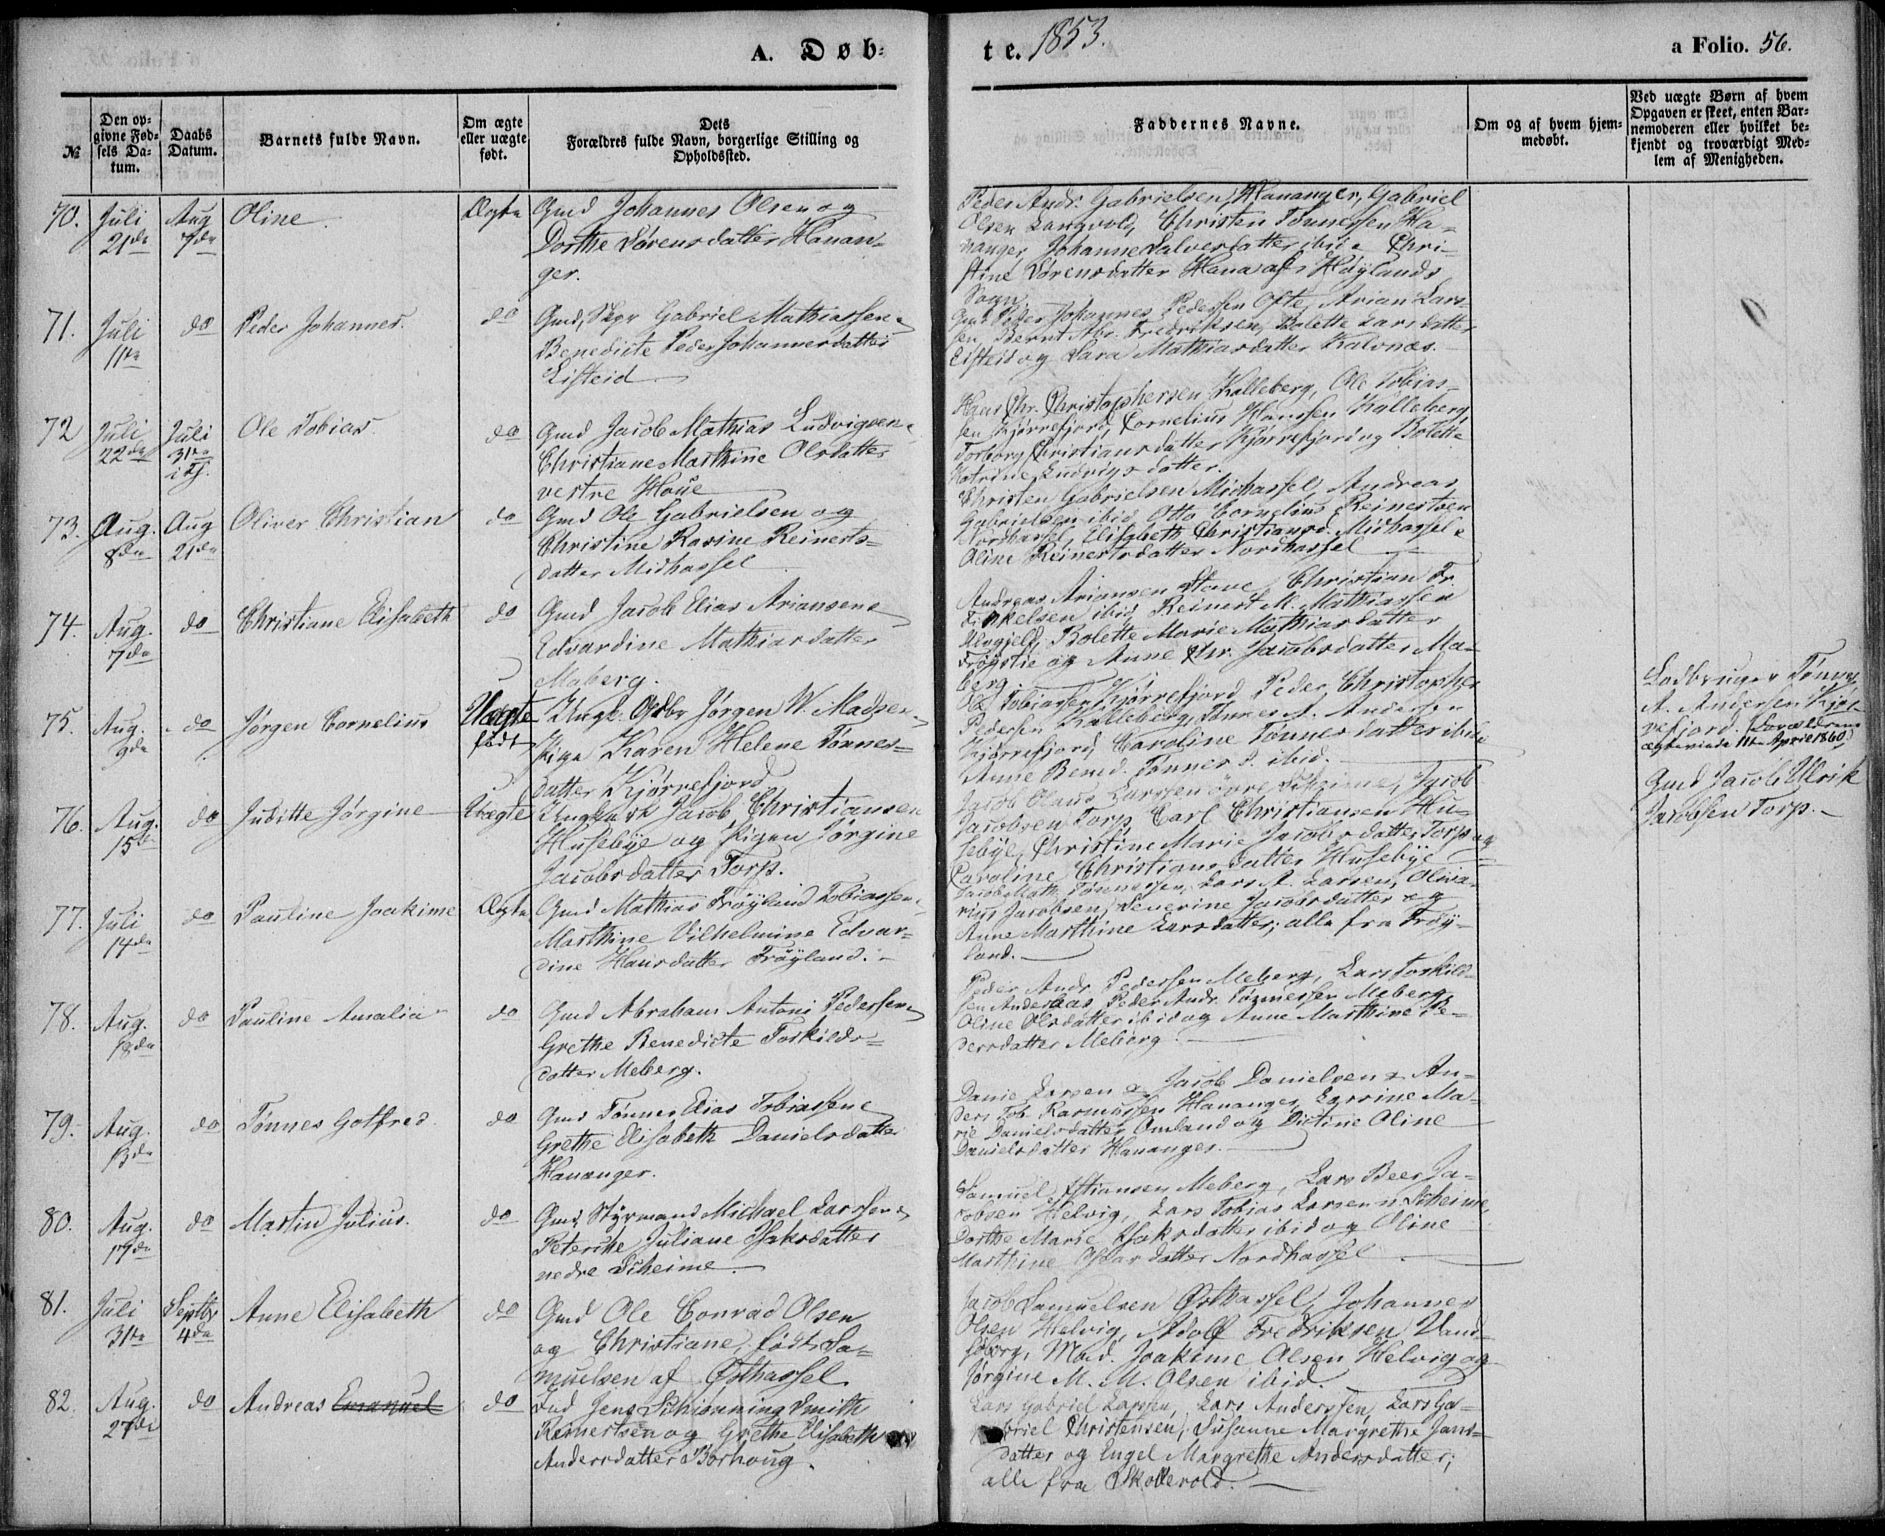 A. Døb-
te. 1853.
a Folio. 56.
№
Den op-
givne Fød-
sels Da-
tum.
Daabs
Datum.
Barnets fulde Navn.
Om ægte
eller uægte
født.
Dets
Forældres fulde Navn, borgerlige Stilling og
Opholdssted.
Faddernes Navne.
Om og af hvem hjem-
medøbt.
Ved uægte Børn af hvem
Opgaven er skeet, enten Bar-
nemoderen eller hvilket be-
kjendt og troværdigt Med-
lem af Menigheden.
70. Juli
21de
Aug
7de
Oline
Ægte
Gmd Johannes Olsen og
Dorthe Sørensdatter Hanan-
ger.
Peder Andr. Gabrielsen Hananger, Gabriel
Olsen Langvold, Christen Tønnessen Ha-
nanger, Johanne Salvesdatter ibid & Chri-
stine Sørensdatter Hanas af Høylands
Sogn
71. Juli
11te
do
Peder Johannes
do
Gmd, Skpr Gabriel Mathiassen &
Benedicte Peder Johannesdatter
Eitteid
Gmd Peder Johannes Pedersen Ofte, Arian Lars-
sen, Bernt Abr. Fredriksen, Bolette Larsdatter
Eitteid og Sara Mathiasdatter Kalvnes.
72 Juli
22de
Juli
31te
i Tj.
Ole Tobias
do
Gmd Jacob Mathias Ludvigsen &
Christiane Marthine Olsdatter
vestre Haue
Hans Chr. Christophersen Kalleberg, Ole Tobias-
sen Kjørrefjord, Cornelius Hanssen Kalleberg,
Torborg Christiansdatter Kjørrefjord og Bolette
Katrine Ludvigsdatter.
73. Aug.
8de
Aug
21de
Oliver Christian
do
Gmd Ole Gabrielsen og
Christine Rasine Reinerts-
datter Midhassel
Christen Gabrielsen Midhassel, Andreas
Gabrielsen ibid, Otto Cornelius Reinertsen
Nordhassel, Elisabeth Christiansd. Midhassel &
Oline Reinertsdatter Nordhassel
74. Aug.
7de
do
Christiane Elisabeth
do
Gmd Jacob Elias Ariansen &
Edvardine Mathiasdatter
Maberg.
Andreas Ariansen Stave, Christian Tr.
Ernkelsen ibid, Reinert M. Mathiassen
Ulvgjeld, Bolette Marie Mathiasdatter
Frøystie og Anne Chr. Jacobsdatter Ma-
berg.
75. Aug.
9de
do
Jørgen Cornelius
Uægte
født
Ungk. Jørgen W. Madsen &
Pige Karen Helene Tønnes-
datter Kjørrefjord
Ole Tobiassen Kjørrefjord, Peder Christopher
Pedersen Kalleberg, Tønnes A. Andersen
Kjørrefjord, Caroline Tønnesdatter ibid
Anne Bened. Tønnesd. ibid.
Lodbruger Tønnes
A. Andersen Kjør-
refjord. (Forældrene
ægteviede 11te April 1860)
76. Aug.
15de
do
Juditte Jørgine
Uægte
Ungkarl Jacob Christiansen
Husebye og Pigen Jørgine
Jacobsdatter Torp.
Jacob Olaus Larssen øvre Skeime, Jacob
Jacobsen Torp, Carl Christiansen Hu-
sebye, Christine Marie Jacobsdatter Torp og
Caroline Christiansdatter Husebye
Gmd Jacob Ulrik
Jacobsen Torp.
77. Juli
14de
do
Pauline Joakime
Ægte
Gmd Mathias Frøyland Tobiassen &
Marthine Vilhelmine Edvar-
dine Hansdatter Frøyland.
Jacob Math. Tønnessen, Lars A. Larsen, Oliva-
rius Jacobsen, Severine Jacobsdatter og
Anne Marthine Larsdatter; alle fra Frøy-
land.
78. Aug.
18de
do
Pauline Amalia
do
Gmd Abraham Antoni Pedersen &
Grethe Benedicte Torkilds-
datter Meberg.
Peder Andr. Pedersen Meberg, Lars Torkild-
sen Andersaas, Peder Andr. Tønnesen Meberg,
Oline Olsdatter ibid og Anne Marthine Pe-
dersdatter Meberg.
79. Aug.
13de
do
Tønnes Gotfred
do
Gmd Tønnes Elias Tobiassen &
Grethe Elisabeth Danielsdatter
Hananger.
Daniel Larsen & Jacob Danielsen & An-
ders Tob. Rasmussen Hananger, Larsine Ma-
rie Danielsdatter Omland og Dictine Oline
Danielsdatter Hananger.
80. Aug.
17de
do
Martin Julius.
do
Gmd, Styrmand Michael Larssen &
Petrike Juliane Isaksdatter
nedre Skeime.
Samuel Stiansen Meberg, Lars Beer Ja-
cobsen Helvig, Lars Tobias Larsen n. Skeime,
Dorthe Marie Isaksdatter ibid og Oline
Marthine datter Nordhassel
81. Juli
31te
Septbr
4de
Anne Elisabeth
do
Gmd Ole Conrad Olsen
og Christiane, født Sa-
muelsen af Østhassel
Jacob Samuelsen Østhassel, Johannes
Olsen Helvig, Adolf Fredriksen Vand-
søborg, Mad. Joakime Olsen Helvig og
Jørgine M. M. Olsen ibid.
82. Aug.
27de
do
Andreas Emanuel
do
Ind Jens Schiønning Smith
Reinertsen og Grethe Elisabeth
Andersdatter Borhoug.
Lars Gabriel Larsen, Lars Anderssen, Lars Ga-
briel Christensen, Susanne Margrethe Jans-
datter og Engel Margrethe Andersdatter;
alle fra Skollevold.